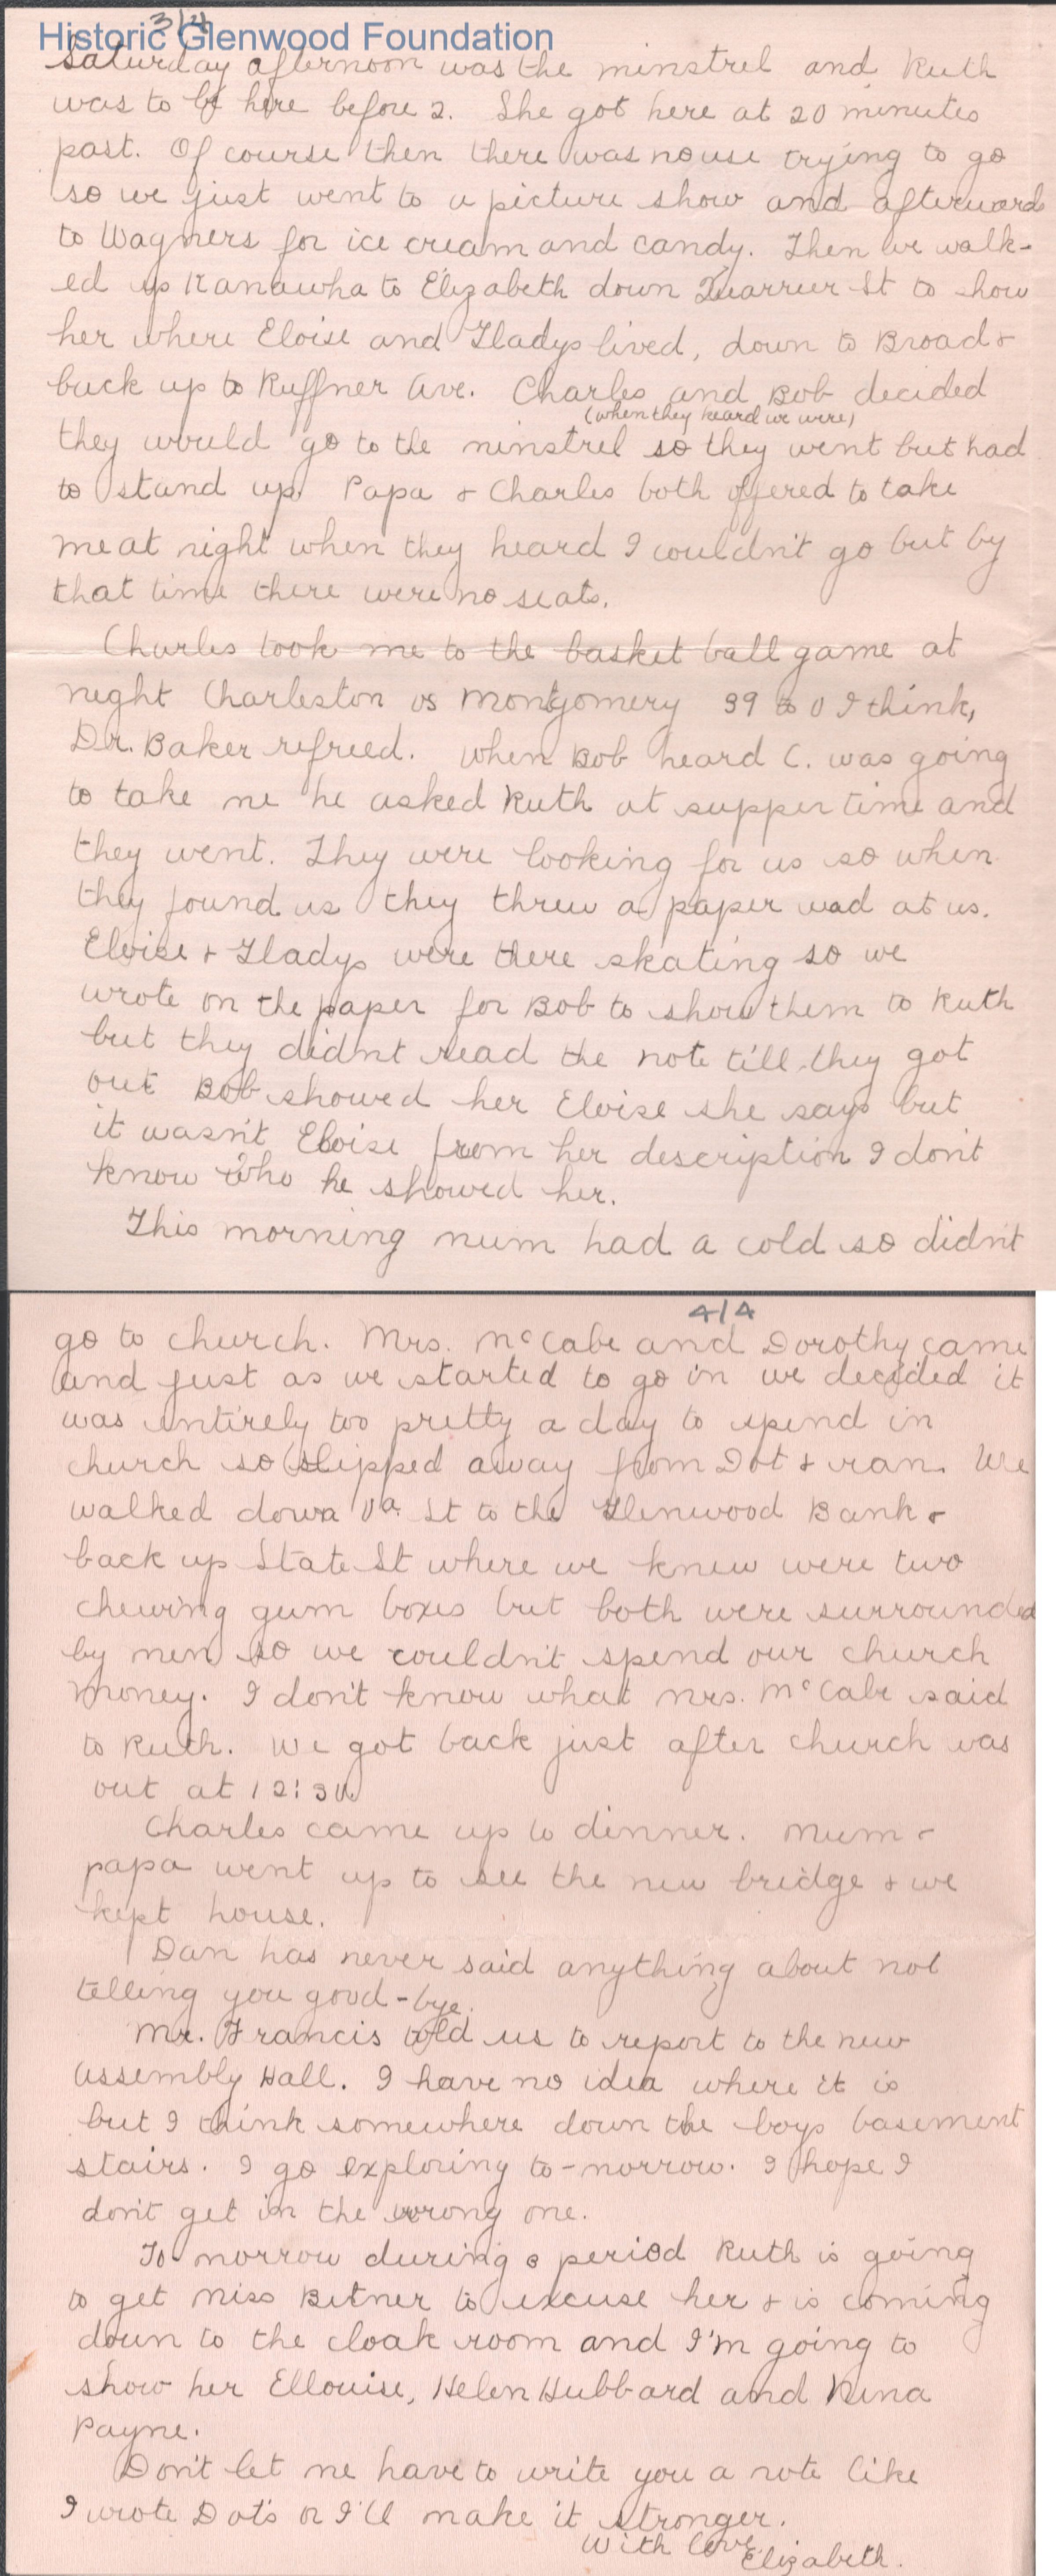 Historic Glenwood Foundation
3/4
Saturday afternoon was the minstrel and Ruth
was to be here before 2. She got here at 20 minutes
past. Of course then there was no use trying to go
so we just went to a picture show and afterwards
to Wagners for ice cream and candy. Then we walk-
ed up Kanawha to Elizabeth down Quarrier St to show
her where Eloise and Gladys lived, down to Broad &
back up to Ruffner Ave. Charles and Bob decided
(when they heard we were)
they would go to the ninstrel so they went but had
to stand up. Papa & Charles both offered to take
me at night when they heard I couldn't go but by
that time there were no seats.
Charles took me to the basket ball game at
night Charleston vs Montgomery 39 to 0 I think,
Dr. Baker refreed. When Bob heard C. was going
to take me he asked Ruth at supper time and
they went. They were looking for us so when
they found us they threw a paper wad at us.
Eloise & Gladys were there skating so we
wrote on the paper for Bob to show them to Ruth
but they didnt read the note till they got
out Bob showed her Eloise she says but
it wasn't Eloise from her description I don't
know who he showed her.
This morning mum had a cold so didn't
4/4
go to church. Mrs. McCabe and Dorothy came
and just as we started to go in we decided it
was entirely too pretty a day to spend in
church so slipped away from Dot & ran. We
walked down Va. St to the Glenwood Bank &
back up State St where we knew were two
chewing gum boxes but both were surrounded
by men so we couldn't spend our church
money. I don't know what Mrs. McCabe said
to Ruth. We got back just after church was
out at 12:30
Charles came up to dinner. Mum &
papa went up to see the new bridge & we
kept house.
Dan has never said anything about not
telling you good-bye.
Mr. Francis told us to report to the new
Assembly Hall. I have no idea where it is
but I think somewhere down the boys basement
stairs. I go exploring to-morrow. I hope I
don't get in the wrong one.
To-morrow during period Ruth is going
to get Miss Bitner to excuse her & is coming
down to the cloak room and I'm going to
show her Ellouise, Helen Hubbard and Nina
Payne.
Don't let me have to write you a note like
I wrote Dot's or I'll make it stronger.
With love
Elizabeth.